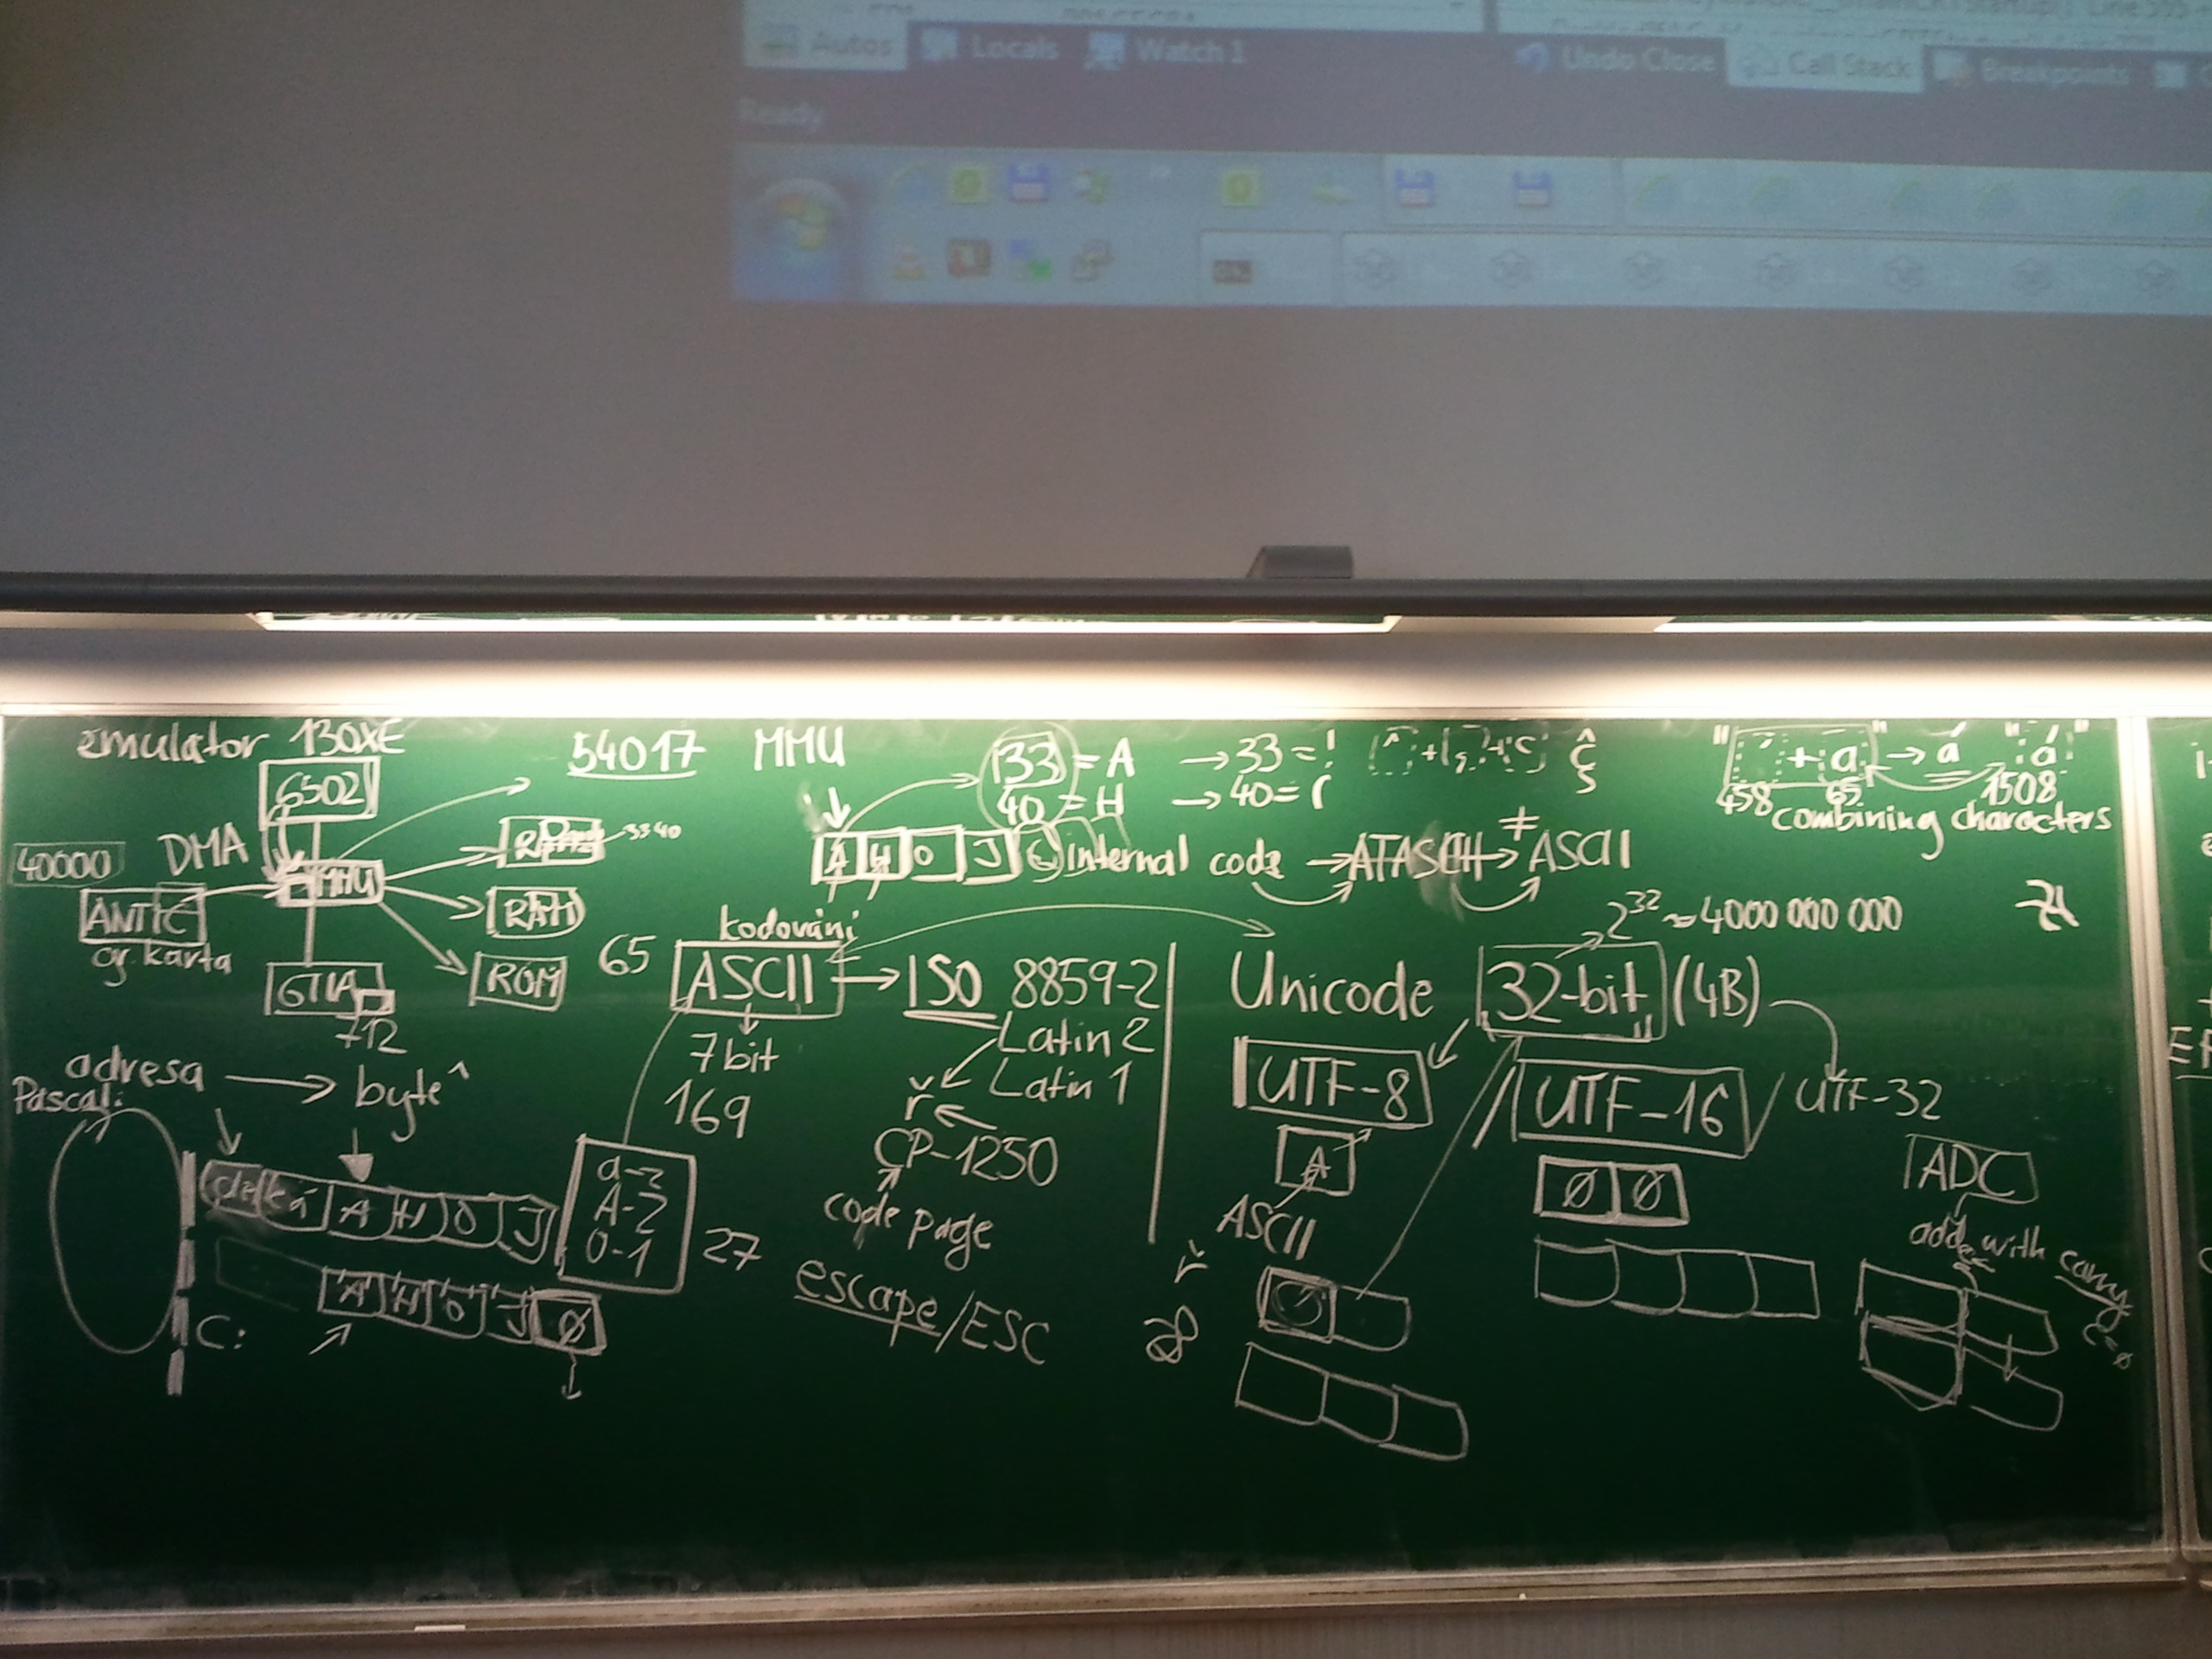 Autos Locals Watch 1
Undo Close Call Stack Breakpoints
Ready
emulator 130XE
6502
DMA
40000
MMU
ANTIC
gr. karta
GTIA
712
RAM
ROM
3340
54017 MMU
33 = A → 33 = !
40 = H → 40 = (
A H O J
Internal code → ATASCII → ≠ ASCII
" ´ + a " → á " á "
458 65 1508
combining characters
kódování
65 ASCII → ISO 8859-2
7bit
169
Latin 2
Latin 1
ř
CP-1250
code page
escape/ESC
27
a-3
A-2
0-1
adresa → byte
Pascal:
délká A H O J
C:
A H O J Ø
Unicode 32-bit (4B)
2^32 ~ 4000 000 000
UTF-8 / UTF-16 / UTF-32
A
ASCII
ř
Ø Ø
ADC
add with carry
C=Ø